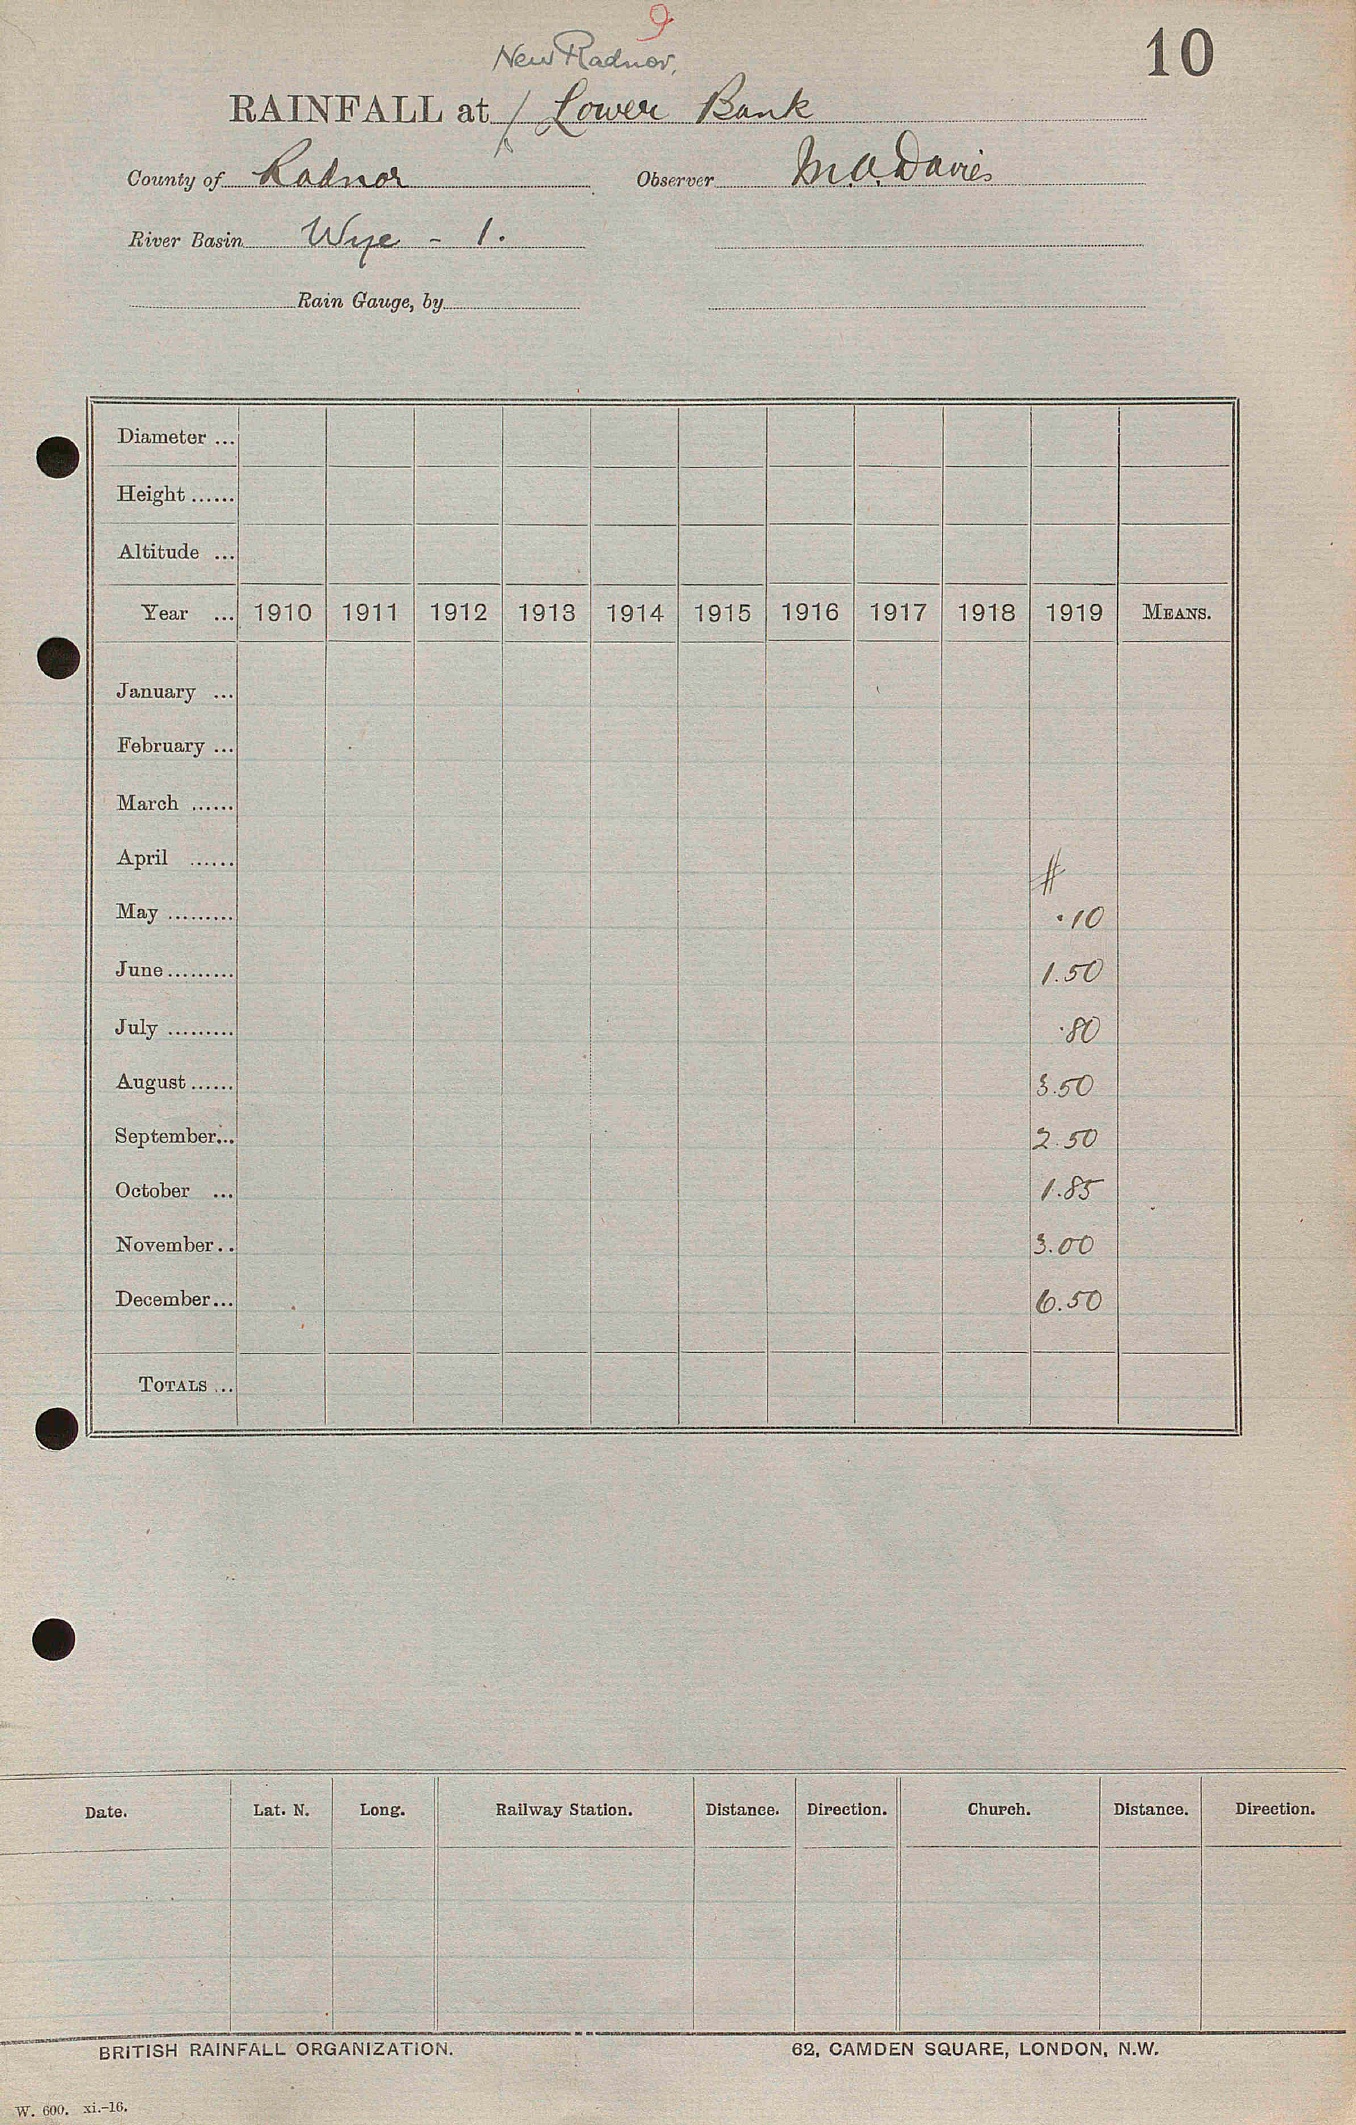 9
10
New Radnor,
RAINFALL at / Lower Bank
County of Radnor Observer M.A. Davies
River Basin Wye - 1.
Rain Gauge, by
Diameter ...
Height ......
Altitude ...
Year ... 1910 1911 1912 1913 1914 1915 1916 1917 1918 1919 MEANS.
January ...
February ...
March ......
April ...... #
May ......... .10
June ......... 1.50
July ......... .80
August ...... 3.50
September... 2.50
October ... 1.85
November .. 3.00
December ... 6.50
TOTALS ...
Date. Lat. N. Long. Railway Station. Distance. Direction. Church. Distance. Direction.
BRITISH RAINFALL ORGANIZATION. 62, CAMDEN SQUARE, LONDON, N.W.
W. 600. xi.-16.